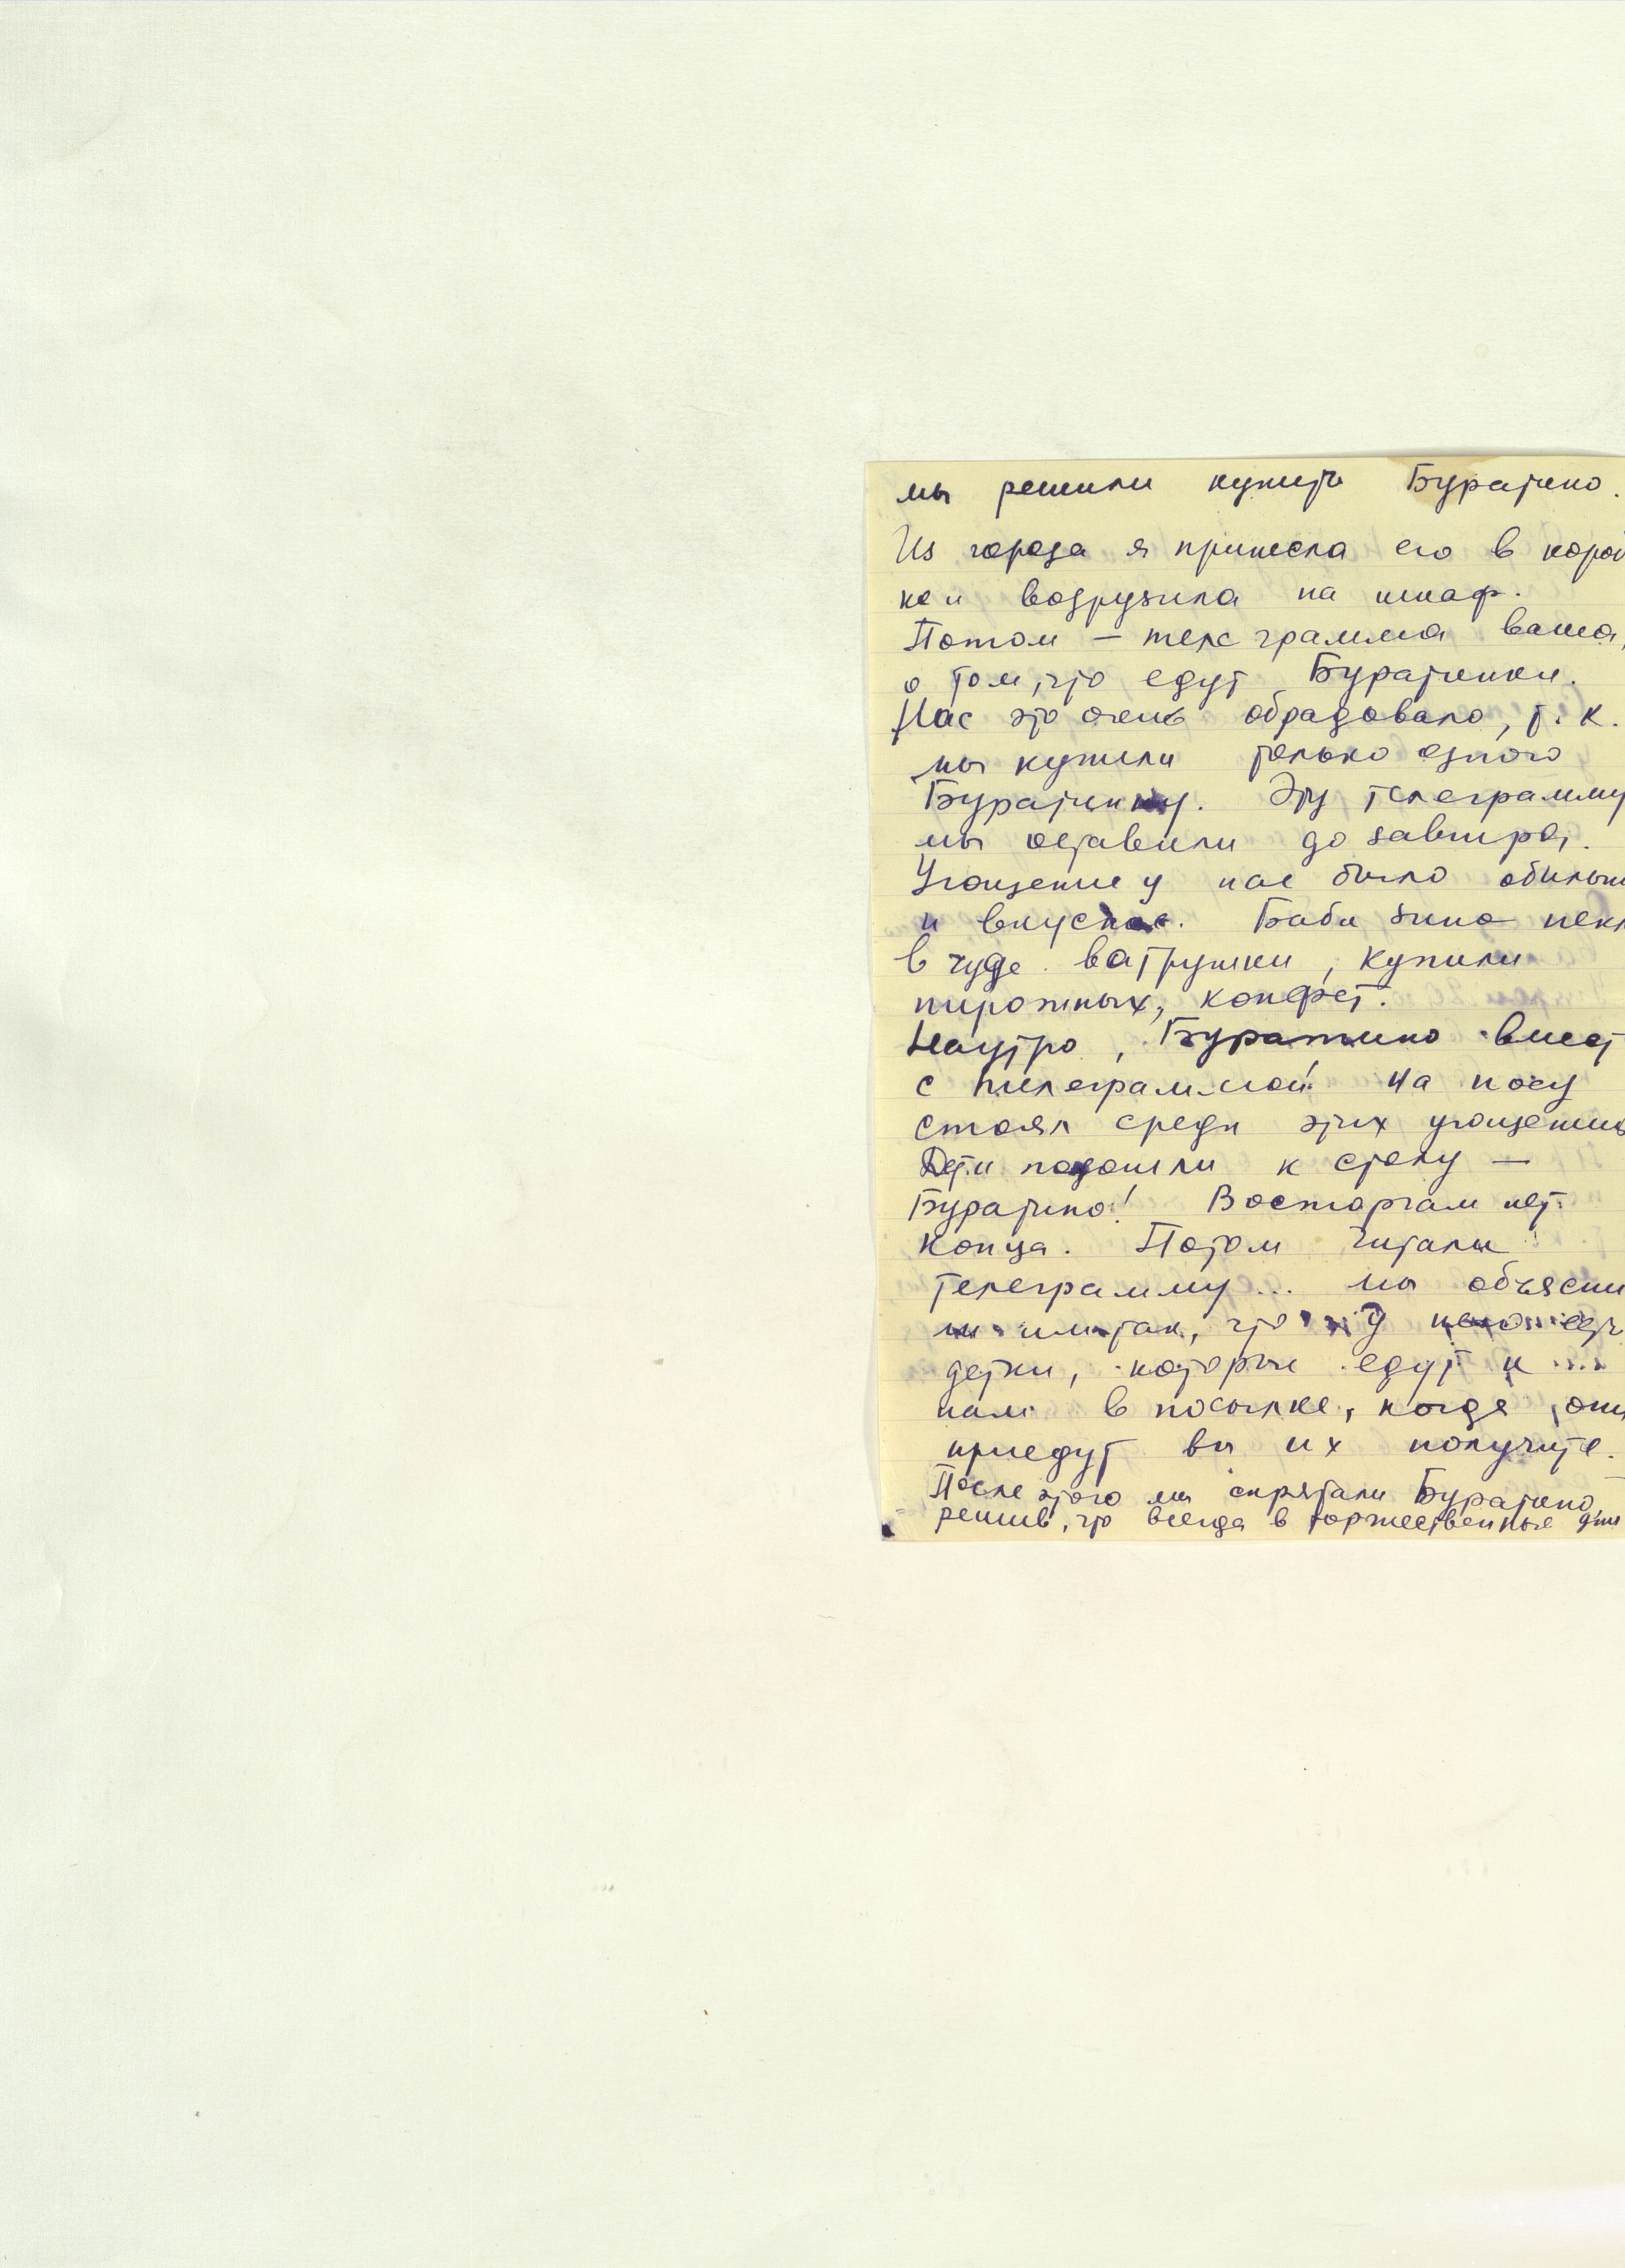 мы решили купить Буратино.
Из города я принесла его в короб
ке и водрузила на шкаф.
Потом – телеграмма ваша,
о том, что едут Буратинки.
Нас это очень обрадовало, т. к.
мы купили только одного
Буратинку. Эту телеграмму
мы оставили до завтра.
Угощение у нас было обильн
и вкусное. Баба Зина пекл
в чуде ватрушки, купили
пирожных, конфет.
Наутро, Буратино вмест
с телеграммой на носу
стоял среди этих угощений
Дети подошли к столу —
Буратино! Восторгам нет
конца. Потом читали
телеграмму... мы объясни
ли им так, что у него есть
детки, которые едут к
нам в посылке, когда они
приедут вы их получите.
После этого мы спрятали Буратино,
решив, что всегда в торжественные дни